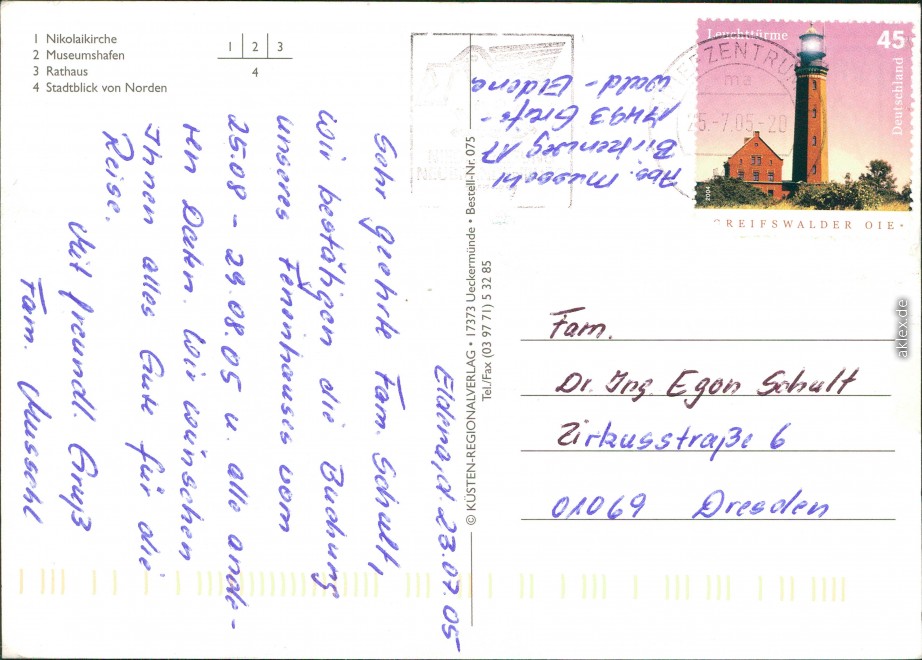 1 Nikolaikirche
2 Museumshafen
3 Rathaus
4 Stadtblick von Norden
1 2 3
4
Eldena, d. 23.07.05
Sehr geehrte Fam. Schult,
Wir bestätigen die Buchung
unseres Ferienhauses vom
25.08 - 29.08.05 u. alle ande-
ren Daten. Wir wünschen
Ihnen alles Gute für die
Reise.
Mit freundl. Gruß
Fam. Mussehl
Abs. Mussehl
Birkenweg 17
17493 Greifs-
wald - Eldena
© KÜSTEN-REGIONALVERLAG • 17373 Ueckermünde • Bestell-Nr. 075
Tel./Fax (03 97 71) 5 32 85
BRIEFZENTRUM
25.-7.05-20
Leuchttürme
45
Deutschland
2004
GREIFSWALDER OIE
Fam.
Dr. Ing. Egon Schult
Zirkusstraße 6
01069 Dresden
aklex.de